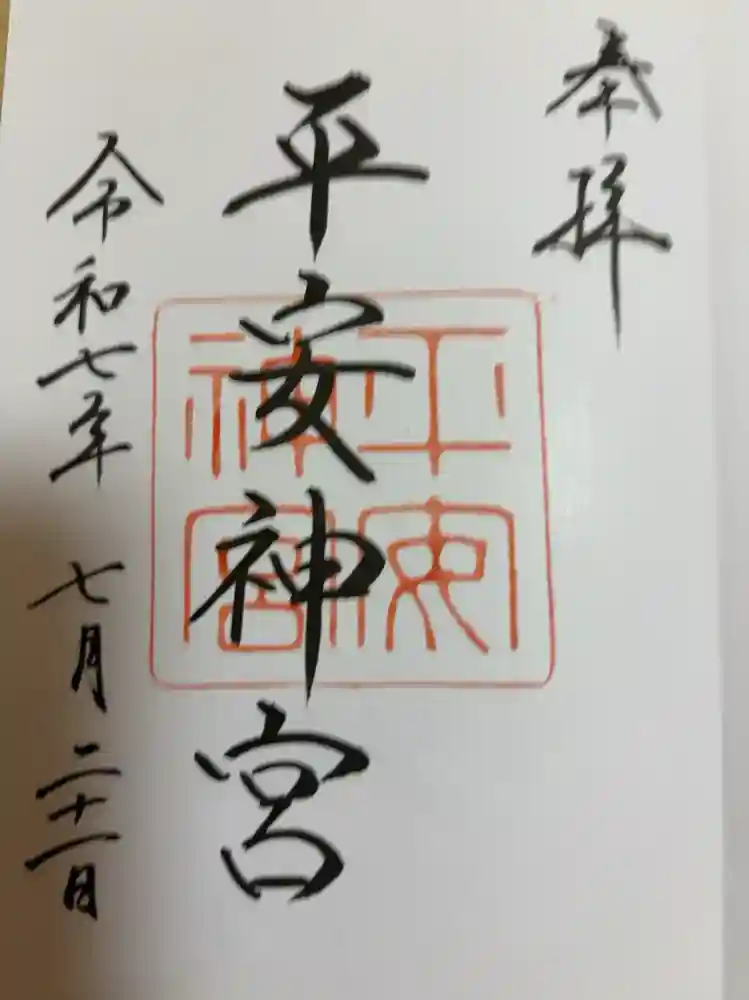 奉拝
平安神宮
平安神宮
令和七年 七月二十一日